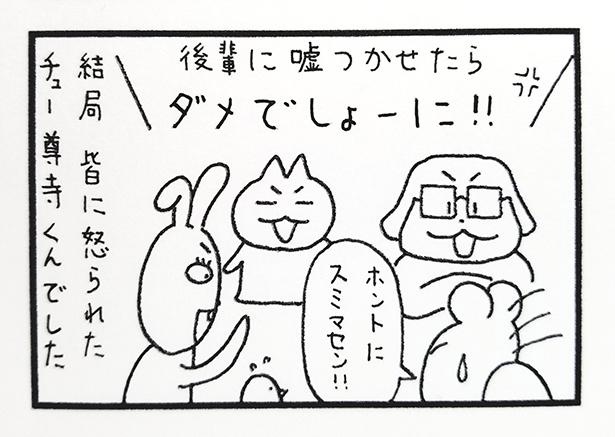 後輩に嘘つかせたら
ダメでしょーに!!
ホントに
スミマセン!!
結局 皆に怒られた
チュー尊寺くんでした